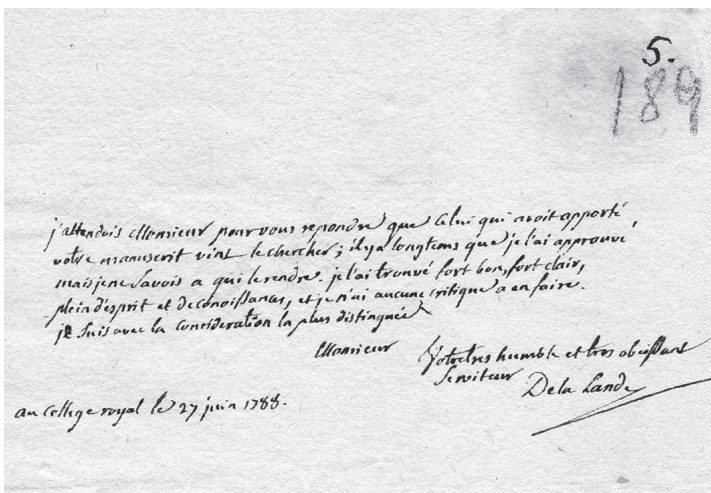 5.
189
j'attendois Monsieur pour vous repondre que Celui qui avoit apporté
votre manuscrit vint le chercher; il y a longtems que je l'ai approuvé
mais je ne Savois a qui le rendre. je l'ai trouvé fort bon, fort clair,
plein d'esprit et de conoissances, et je n'ai aucune critique a en faire.
je Suis avec la Consideration la plus distinguée
Monsieur
Votre tres humble et tres obeissant
Serviteur
De la Lande
au College royal le 27 juin 1788.